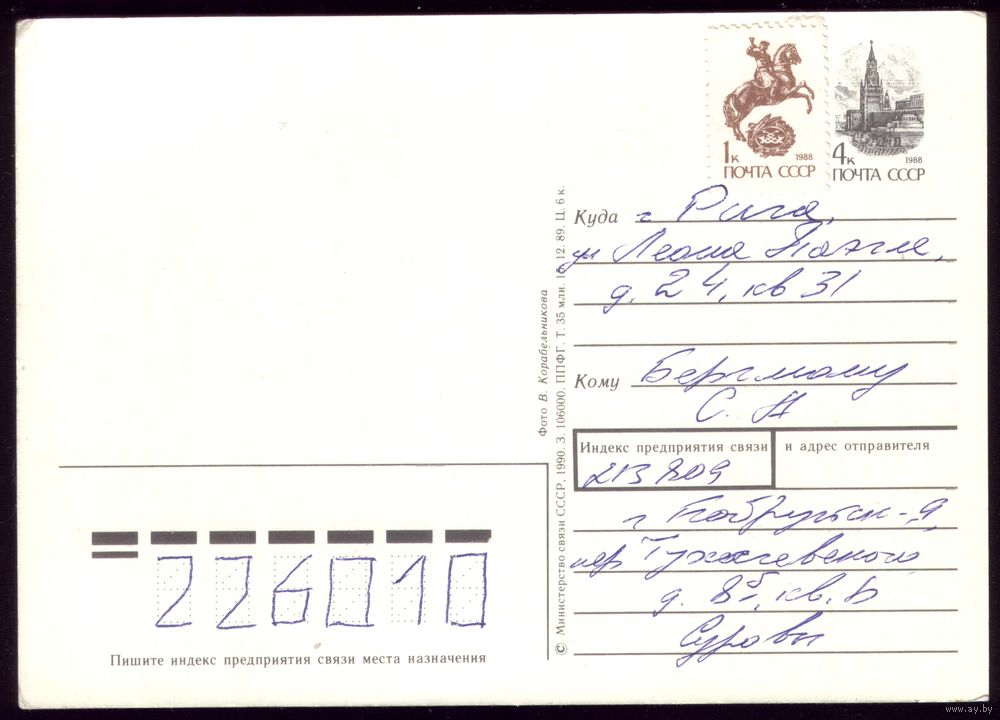 1к 1988
ПОЧТА СССР
4к 1988
ПОЧТА СССР
Куда г Рига,
ул Леона Паэгле,
д. 24, кв 31
Кому Бергману
С. Н
Индекс предприятия связи и адрес отправителя
213809
г Бобруйск-9,
пер Тухачевского
д. 8б, кв. 6
Суровы
226010
Пишите индекс предприятия связи места назначения
Фото В. Корабельникова
© Министерство связи СССР, 1990. З. 106000. ППФГ. Т. 35 млн. 12. 89. Ц. 6 к.
www.ay.by